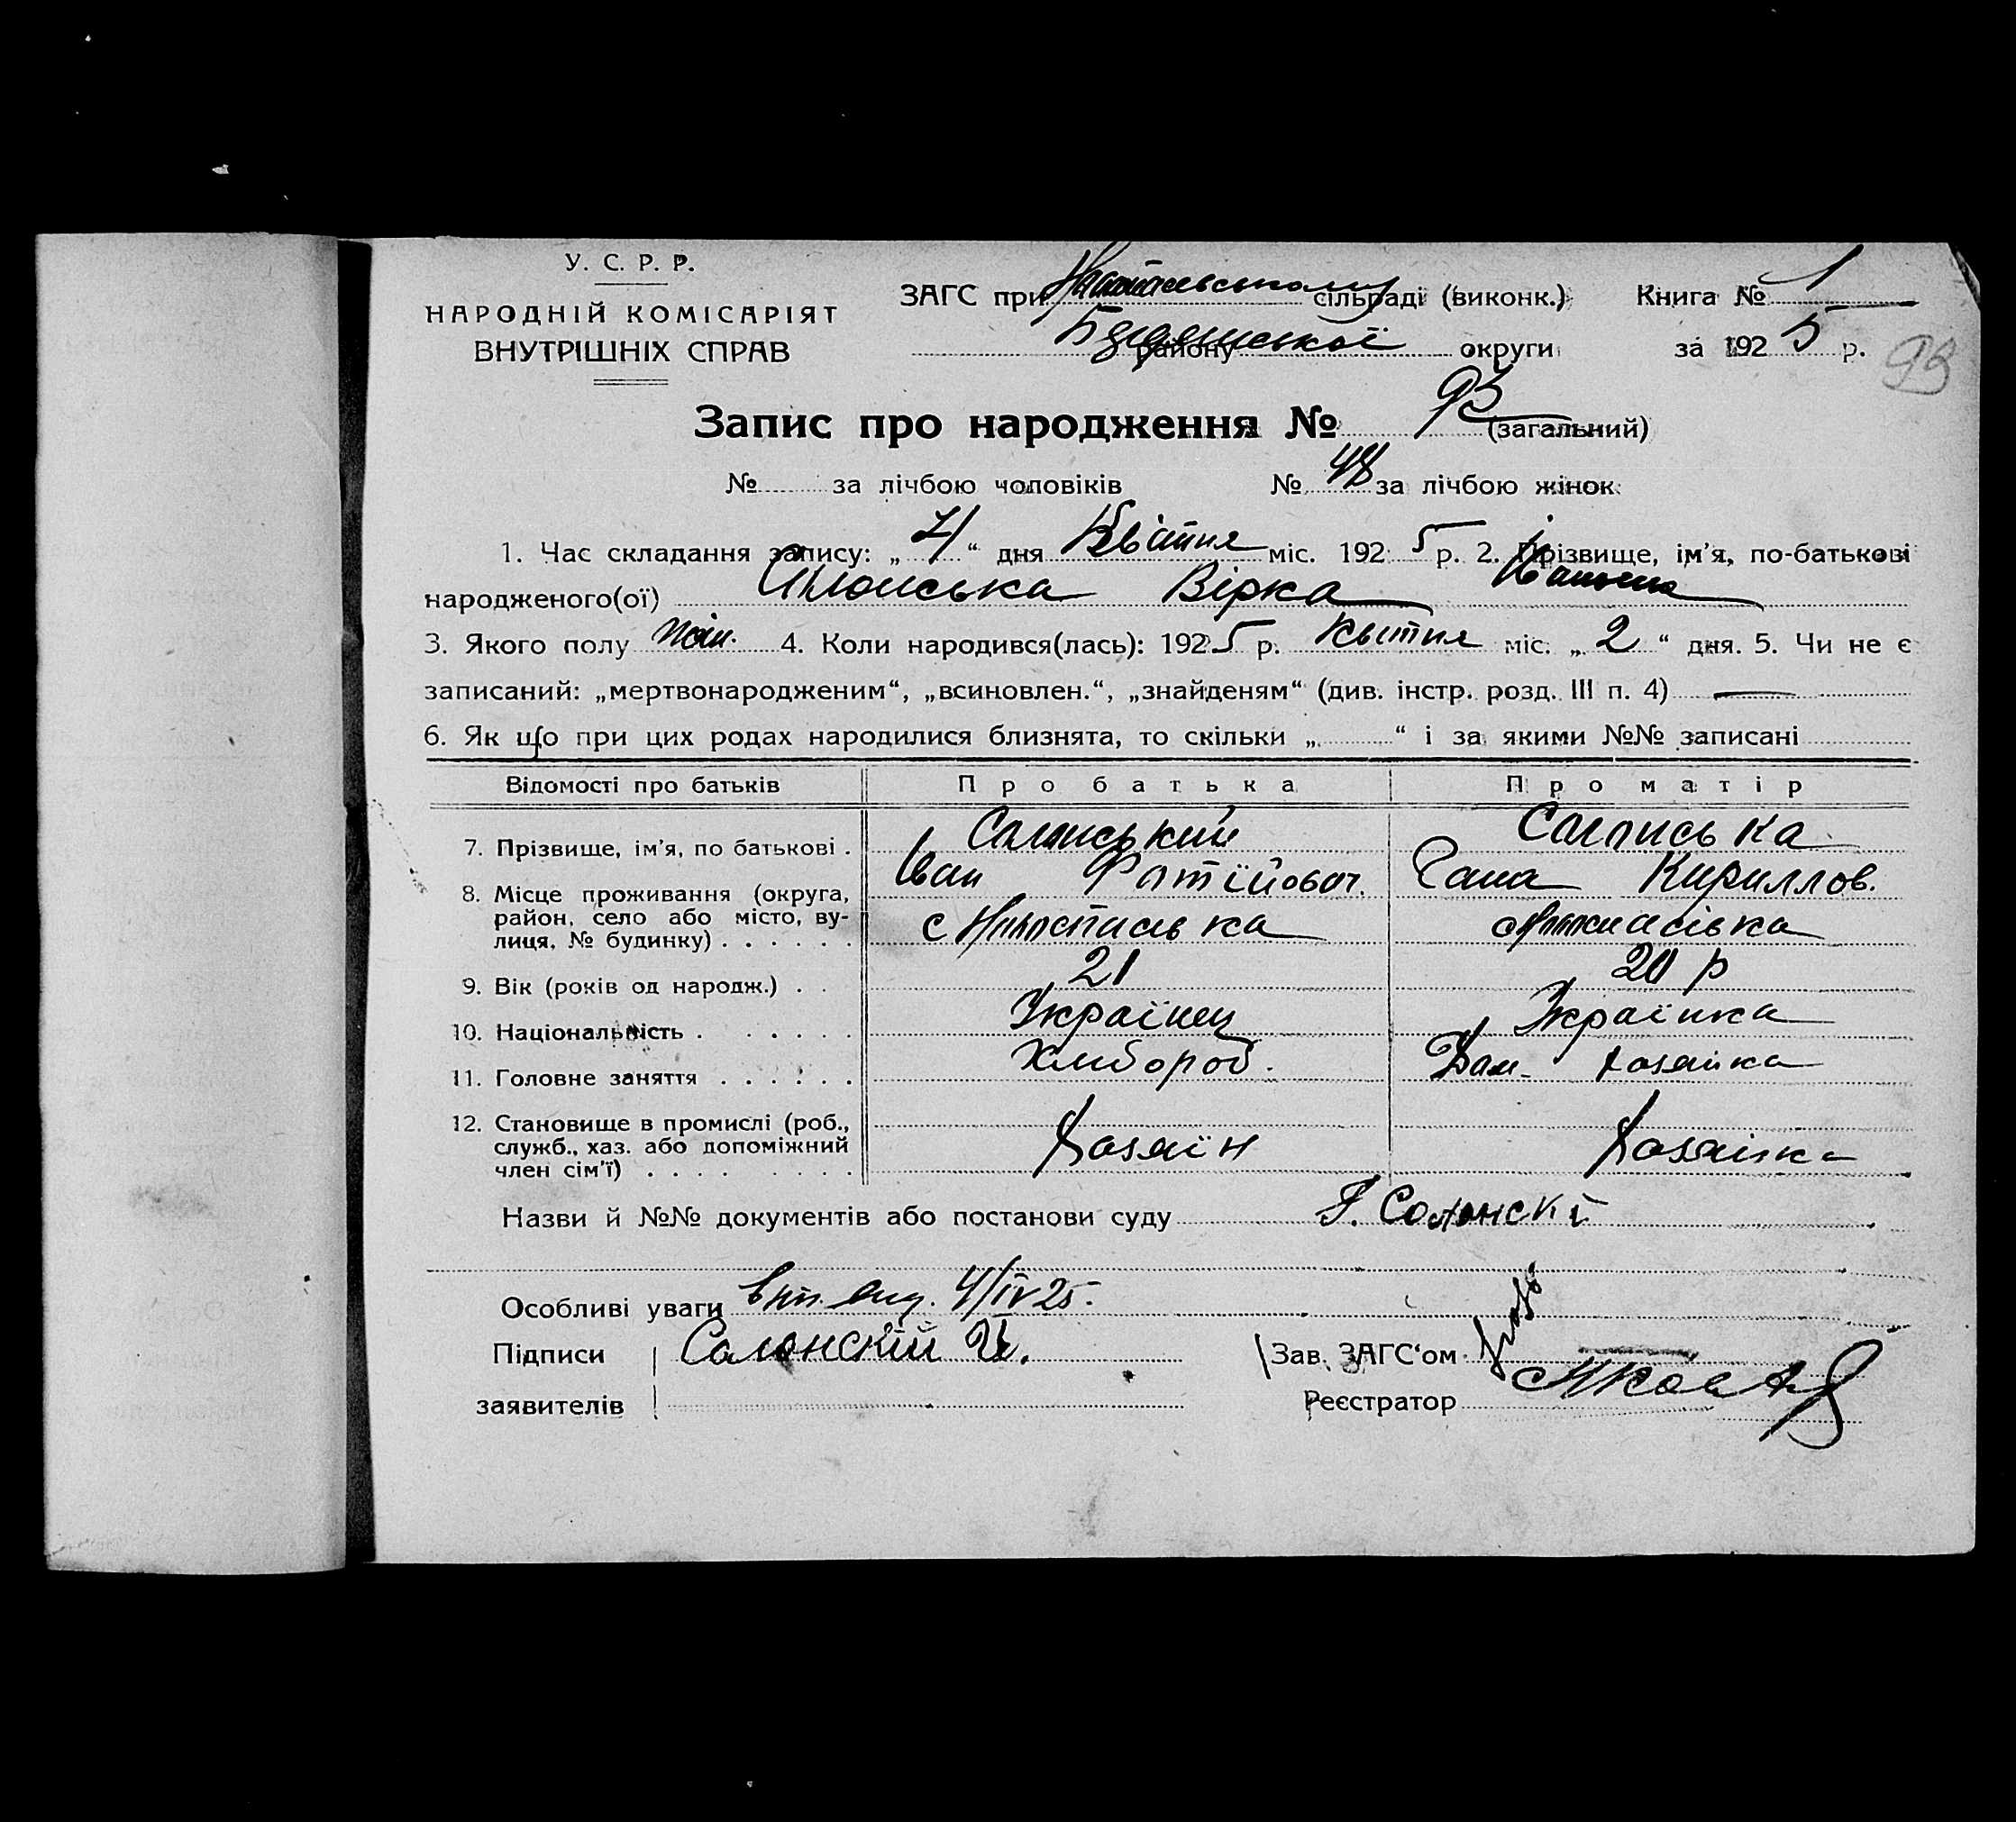 У. С. Р. Р.
НАРОДНІЙ КОМІСАРІЯТ
ВНУТРІШНІХ СПРАВ
ЗАГС при сільраді (виконк.) Книга № 1
району округи за 1925 р.
93
Запис про народження № 93 (загальний)
№ за лічбою чоловіків № 48 за лічбою жінок
1. Час складання запису: „4“ дня Квітня міс. 1925 р. 2. Прізвище, ім'я, по-батькові
народженого(ої) Вірка Івановна
3. Якого полу жін. 4. Коли народився(лась): 1925 р. Квітня міс. „2“ дня. 5. Чи не є
записаний: „мертвонародженим“, „всиновлен.“, „знайденям“ (див. інстр. розд. III п. 4) —
6. Як що при цих родах народилися близнята, то скільки „ “ і за якими №№ записані
Відомості про батьків Про батька Про матір
7. Прізвище, ім'я, по батькові . Солонський Солонська
Іван Фотїйович. Гана Кириллов.
8. Місце проживання (округа,
район, село або місто, вулиця, № будинку) . . . . . . с
9. Вік (років од народж.) . . 21 20 р
10. Національність . . . . . . Українец Українка
11. Головне заняття . . . . . . Хлибороб. Дом. хозяйка
12. Становище в промислі (роб.,
служб., хаз. або допоміжний
член сім'ї) . . . . . . . . Хозяїн Хозяїнка
Назви й №№ документів або постанови суду Солонскй
Особливі уваги 4/IV 25.
Підписи Солонскїй И. Зав. ЗАГС'ом
заявителів Реєстратор